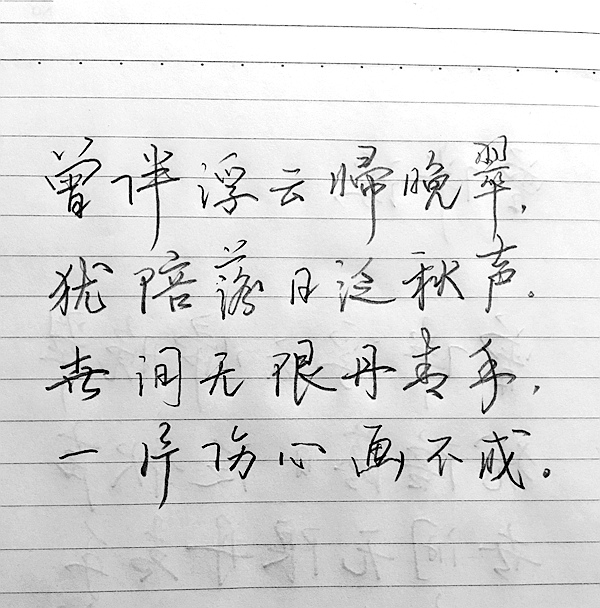 曾伴浮云歸晚翠，
犹陪落日泛秋声。
世间无限丹青手，
一片伤心画不成。